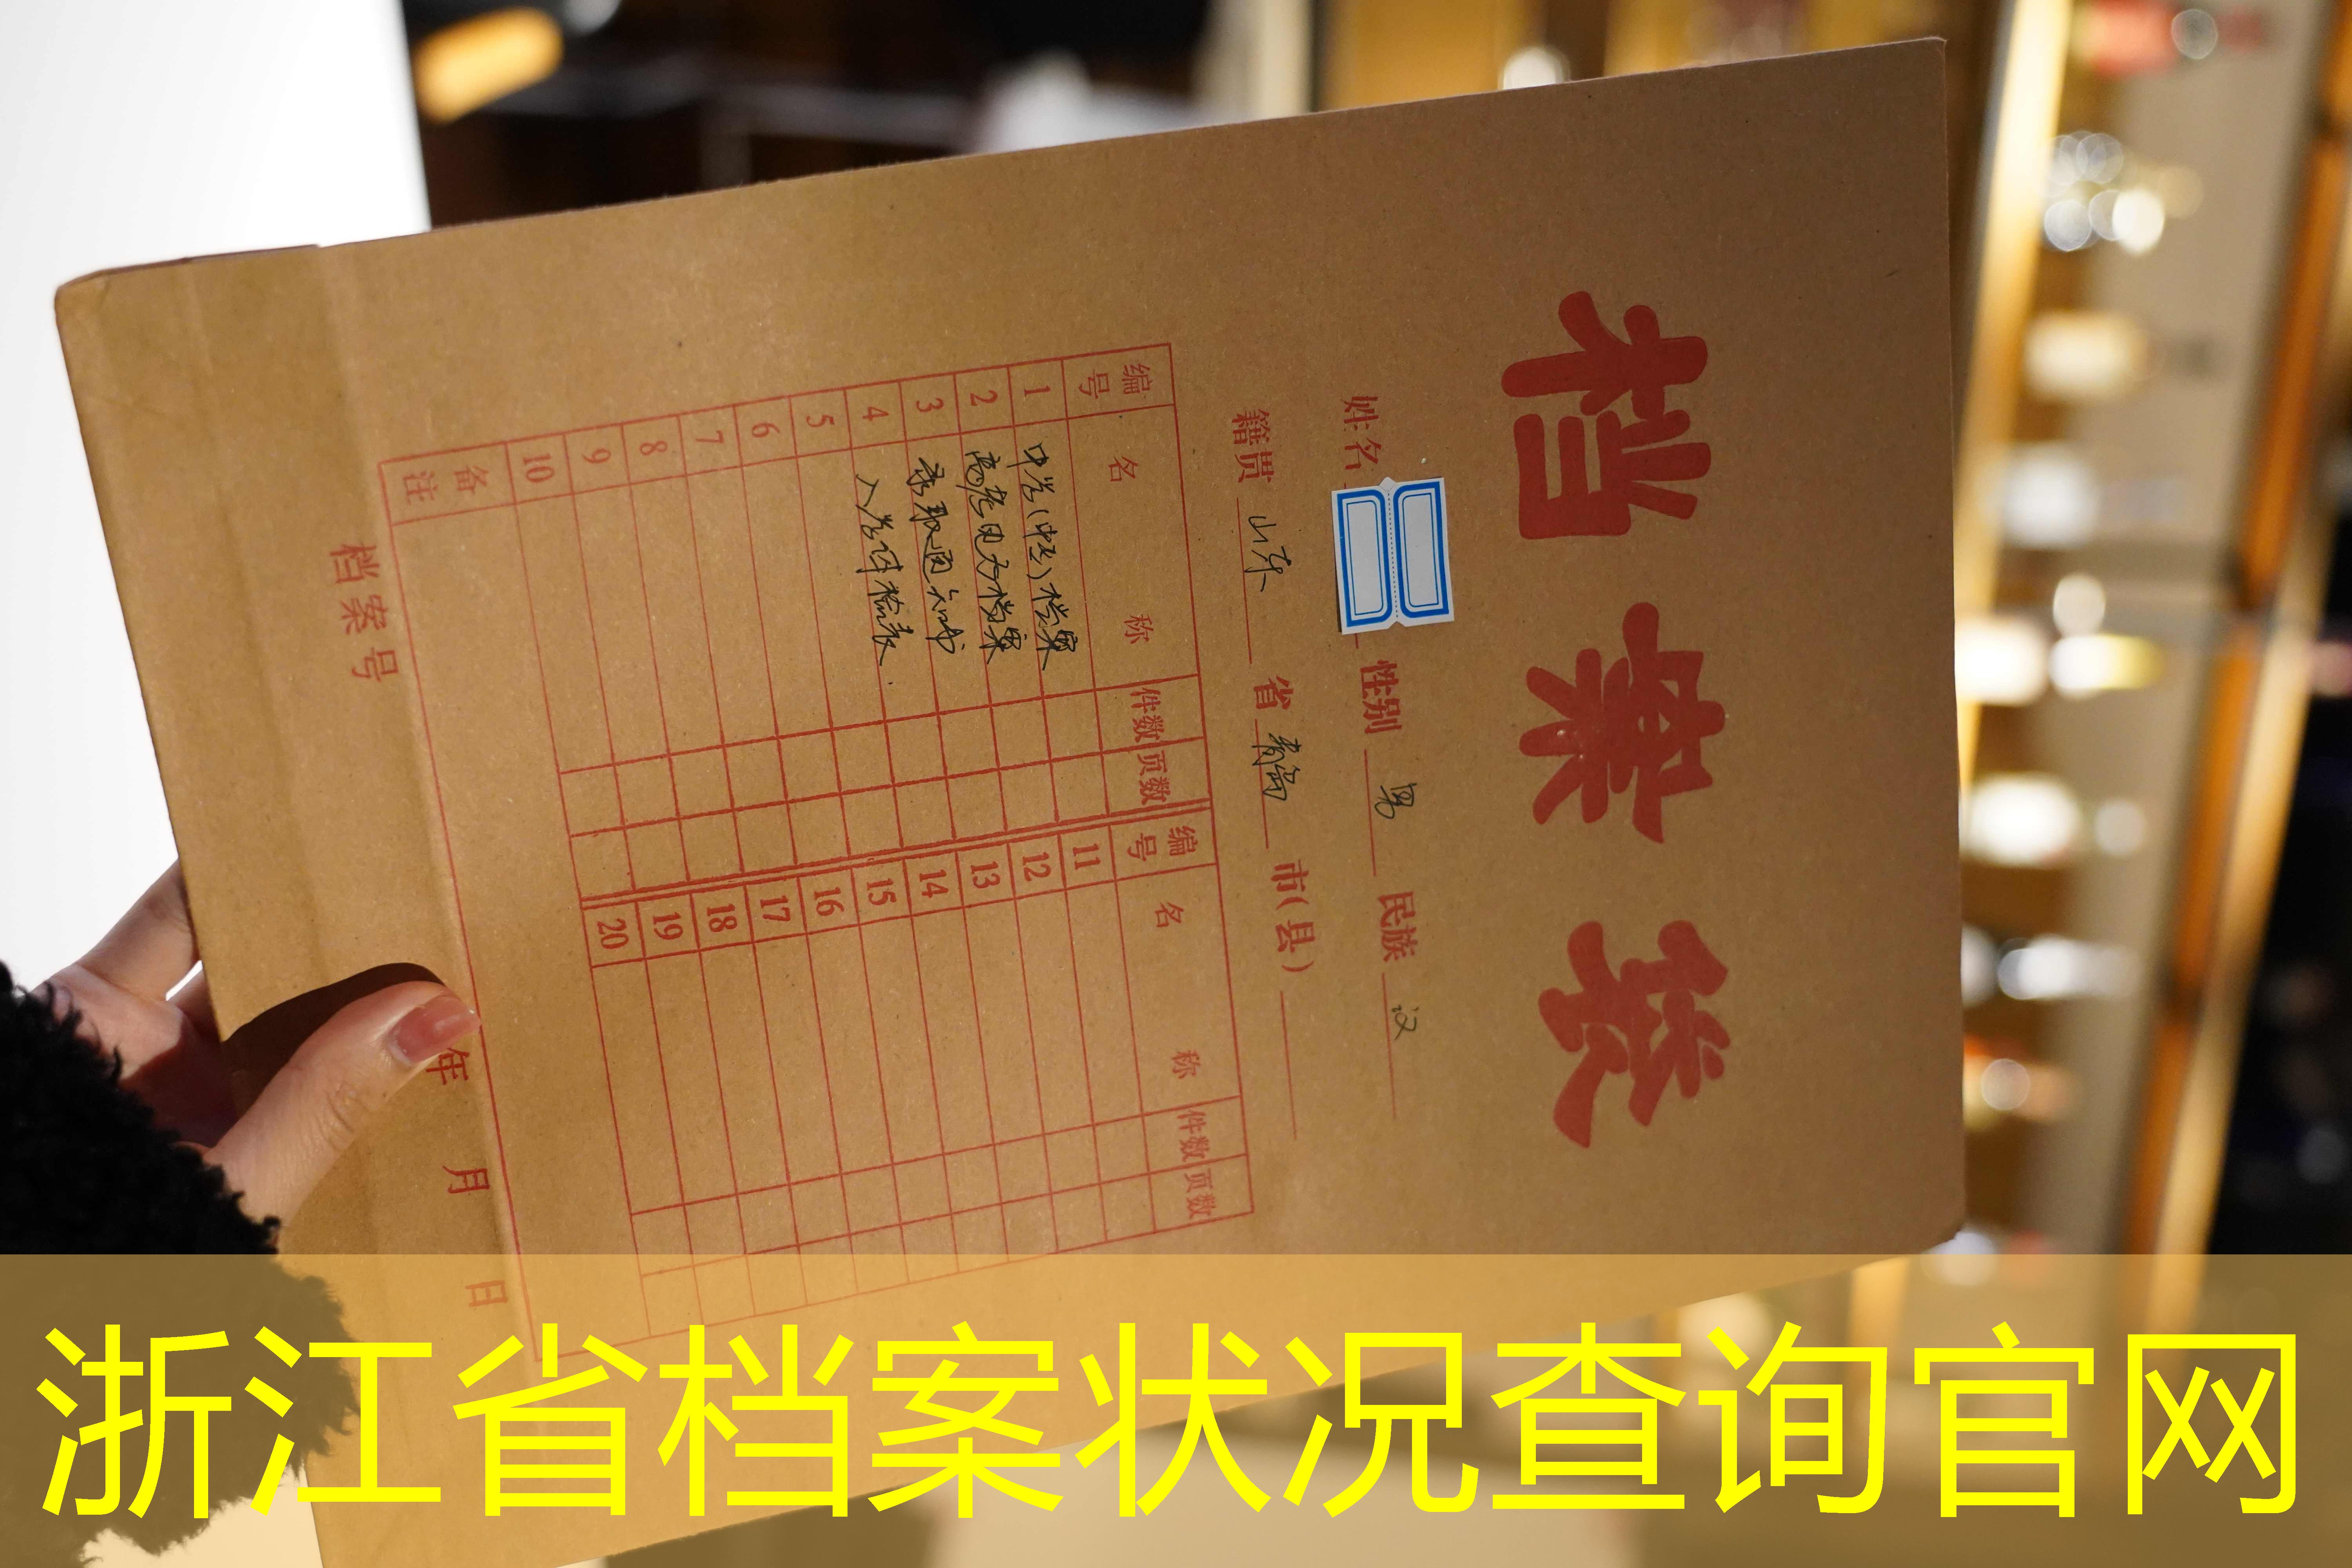 档案袋
姓名 性别 男 民族 汉
籍贯 山东 省 青岛 市(县)
编号 名称 件数 页数 编号 名称 件数 页数
1 中学(中专)档案 11
2 高考电子档案 12
3 录取通知书 13
4 入学体检表 14
5 15
6 16
7 17
8 18
9 19
10 20
备注
档案号 年 月 日
浙江省档案状况查询官网